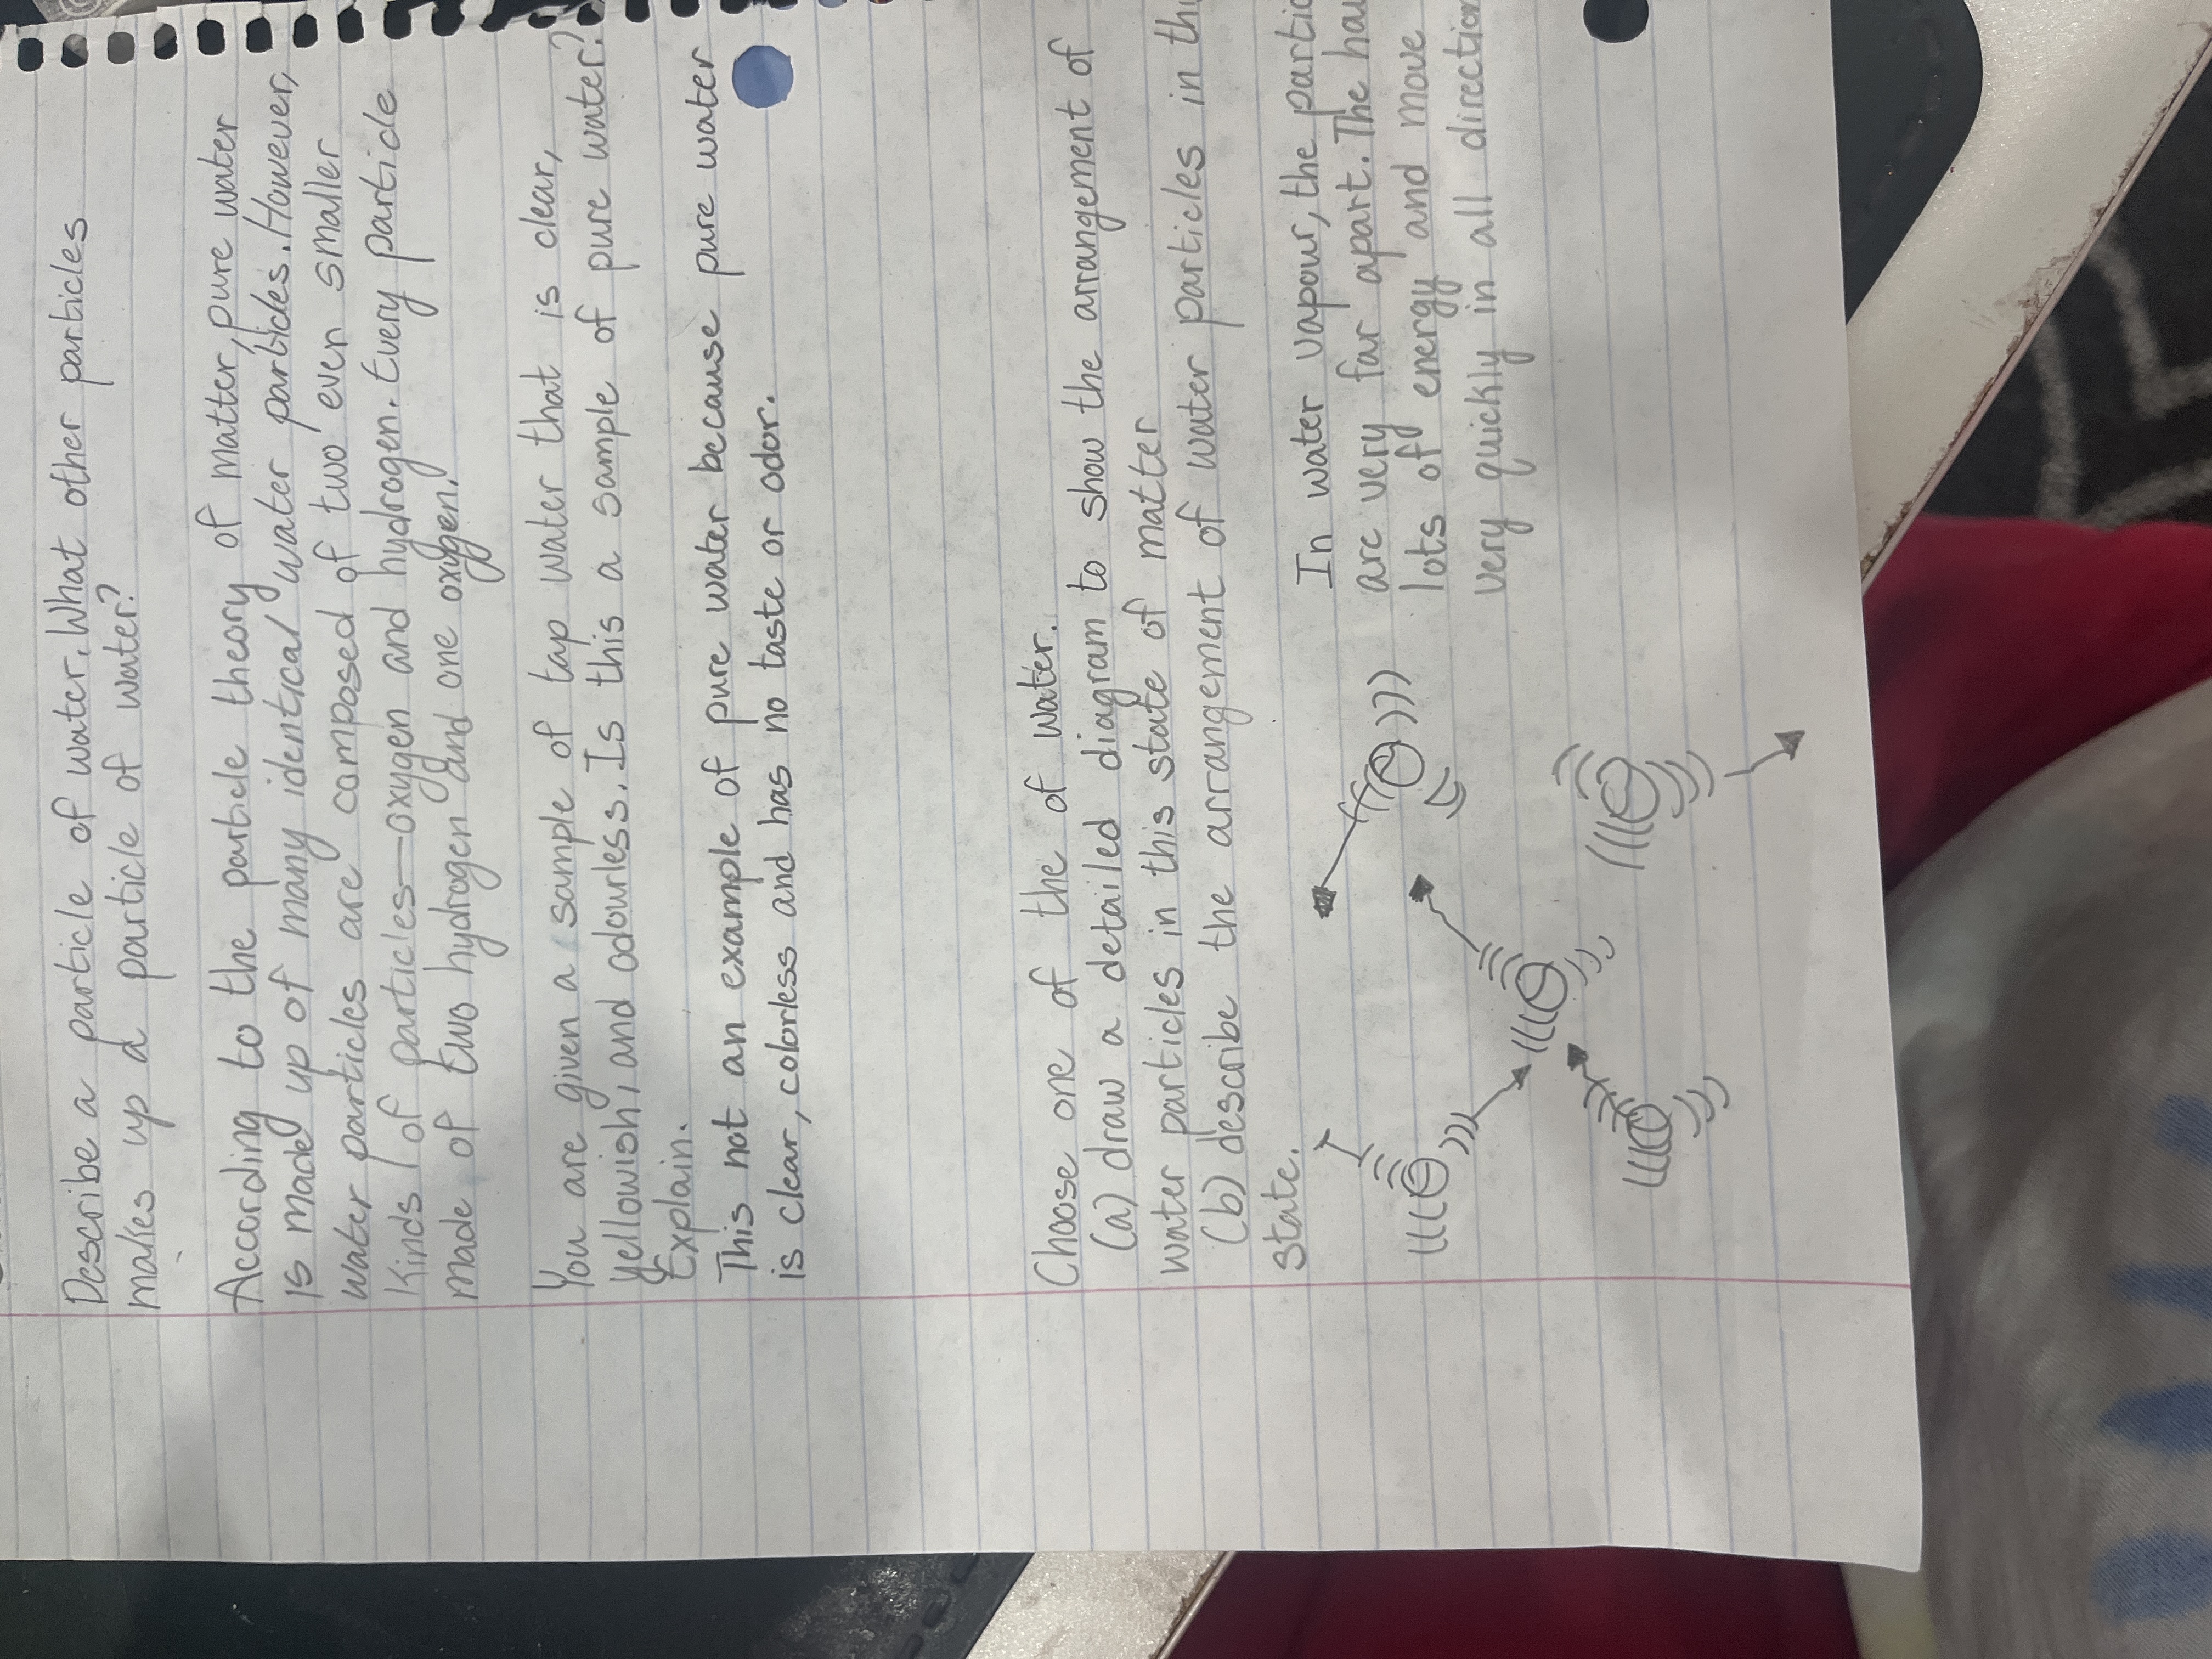 Describe a particle of water. What other particles
makes up a particle of water?
According to the particle theory of matter, pure water
is made up of many identical water particles. However,
water particles are composed of two even smaller
kinds of particles—oxygen and hydrogen. Every particle
made of two hydrogen and one oxygen.
You are given a sample of tap water that is clear,
yellowish, and odourless. Is this a sample of pure water?
Explain.
This not an example of pure water because pure water
is clear, colorless and has no taste or odor.
Choose one of the of water.
(a) draw a detailed diagram to show the arrangement of
water particles in this state of matter
(b) describe the arrangement of water particles in thi
state.
In water vapour, the partic
are very far apart. The hav
lots of energy and move
very quickly in all direction